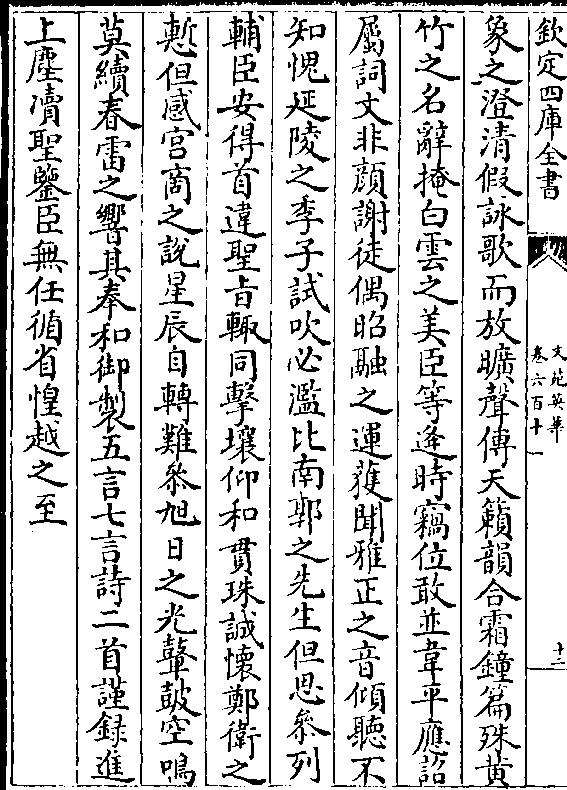 欽定四庫全書
文苑英華
卷六百十一
十二
象之澄清假詠歌而放曠聲傳天籟韻合霜鐘篇殊黄
竹之名辭掩白雲之美臣等逢時竊位敢並韋平應詔
屬詞文非顔謝徒偶昭融之運獲聞雅正之音傾聽不
知愧延陵之季子試吹必濫比南郭之先生但思叅列
輔臣安得首違聖旨輙同擊壤仰和貫珠誠懷鄭衛之
慙但感宫商之說星辰自轉難叅旭日之光鼙皷空鳴
莫續春雷之響其奉和御製五言七言詩二首謹録進
上塵凟聖鑒臣無任循省惶越之至